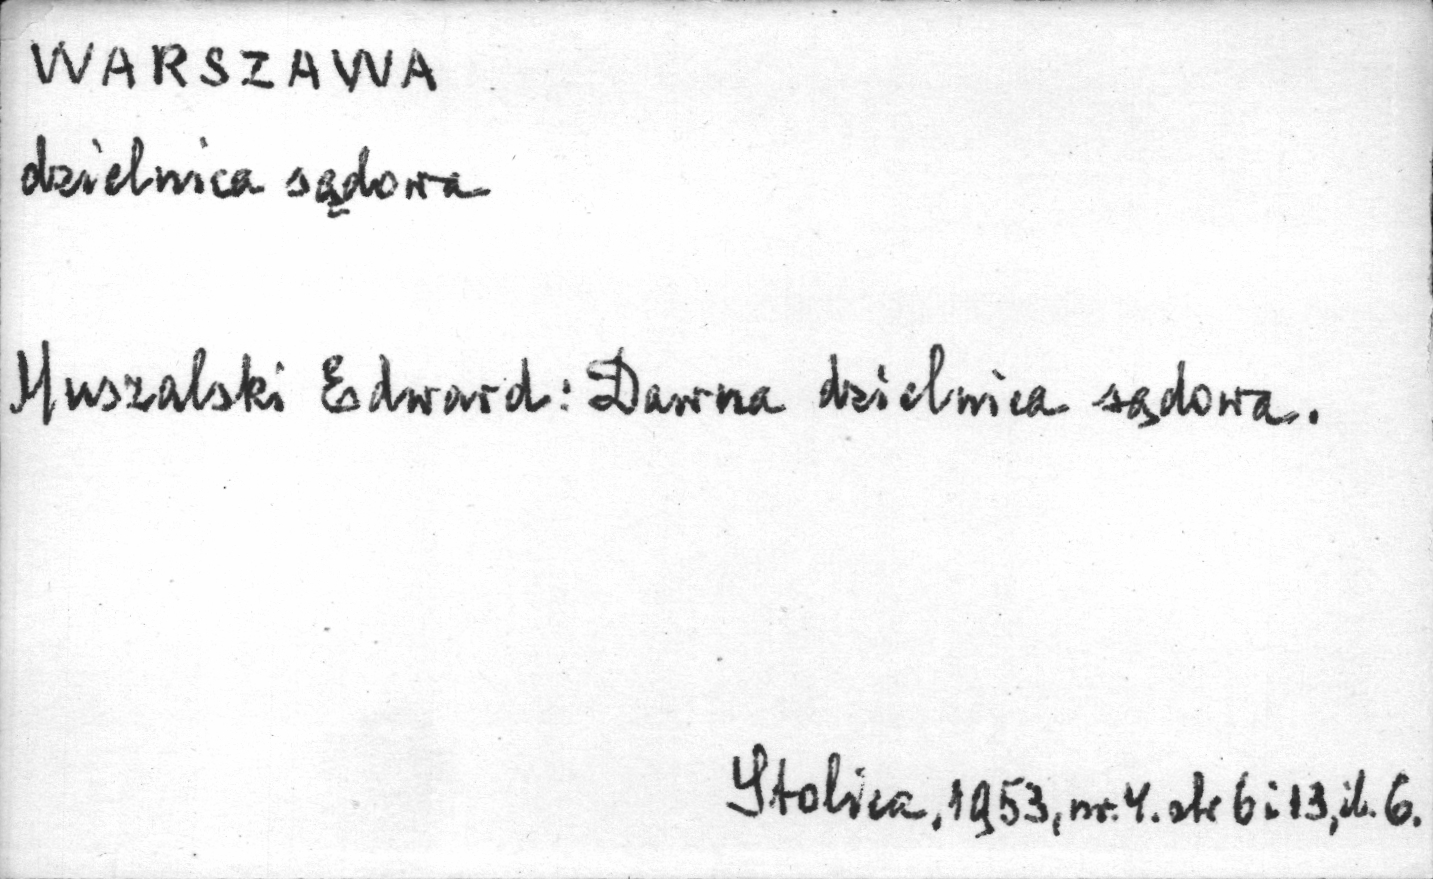 WARSZAWA
dzielnica sądowa
Muszalski Edward: Dawna dzielnica sądowa.
Stolica, 1953, nr. 4. str 6 i 13, il. 6.